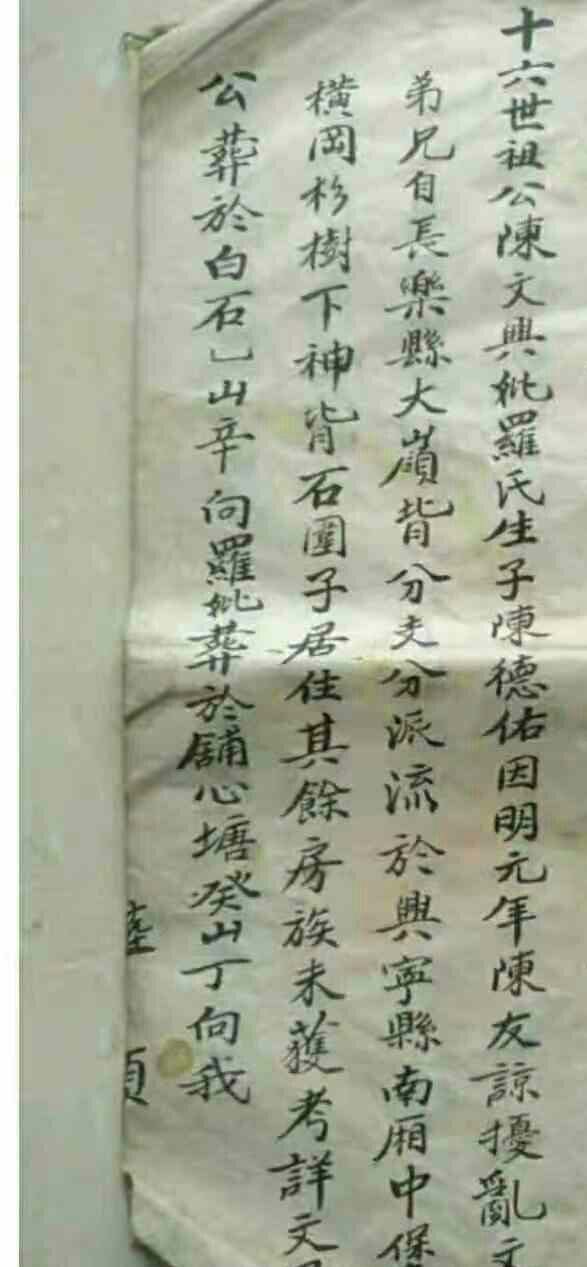 十六世祖公陳文興妣羅氏生子陳德佑因明元年陳友諒擾亂文
弟兄自長樂縣大嵿背分支分派流於興寧縣南廂中保
橫岡杉樹下神背石圍子居住其餘房族未獲考詳文
公葬於白石乚山辛向羅妣葬於舖心塘癸山丁向我